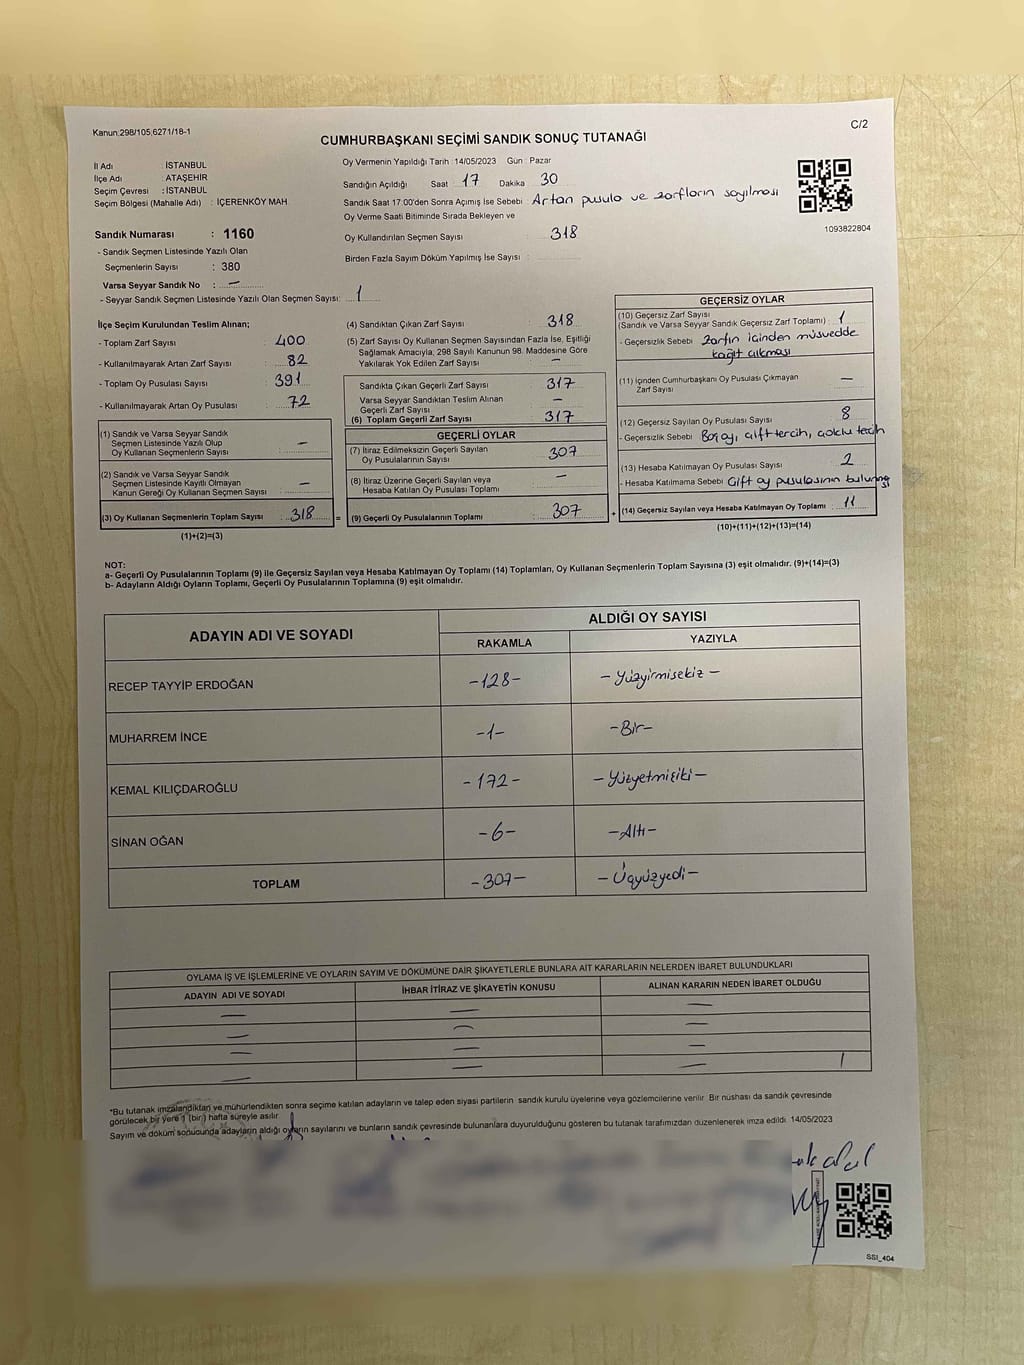 Kanun:298/105,6271/18-1
C/2
CUMHURBAŞKANI SEÇİMİ SANDIK SONUÇ TUTANAĞI
İl Adı : İSTANBUL
İlçe Adı : ATAŞEHİR
Seçim Çevresi : İSTANBUL
Seçim Bölgesi (Mahalle Adı) : İÇERENKÖY MAH.
Oy Vermenin Yapıldığı Tarih : 14/05/2023 Gün : Pazar
Sandığın Açıldığı Saat 17 Dakika 30
Sandık Saat 17.00'den Sonra Açılmış İse Sebebi : Artan pusula ve zarfların sayılması
Oy Verme Saati Bitiminde Sırada Bekleyen ve
Oy Kullandırılan Seçmen Sayısı : 318
Birden Fazla Sayım Döküm Yapılmış İse Sayısı :
1093822804
Sandık Numarası : 1160
- Sandık Seçmen Listesinde Yazılı Olan
Seçmenlerin Sayısı : 380
Varsa Seyyar Sandık No : —
- Seyyar Sandık Seçmen Listesinde Yazılı Olan Seçmen Sayısı: 1
İlçe Seçim Kurulundan Teslim Alınan;
- Toplam Zarf Sayısı : 400
- Kullanılmayarak Artan Zarf Sayısı : 82
- Toplam Oy Pusulası Sayısı : 391
- Kullanılmayarak Artan Oy Pusulası : 72
(1) Sandık ve Varsa Seyyar Sandık
Seçmen Listesinde Yazılı Olup
Oy Kullanan Seçmenlerin Sayısı : —
(2) Sandık ve Varsa Seyyar Sandık
Seçmen Listesinde Kayıtlı Olmayan
Kanun Gereği Oy Kullanan Seçmen Sayısı : —
(3) Oy Kullanan Seçmenlerin Toplam Sayısı : 318
(1)+(2)=(3)
(4) Sandıktan Çıkan Zarf Sayısı : 318
(5) Zarf Sayısı Oy Kullanan Seçmen Sayısından Fazla İse, Eşitliği
Sağlamak Amacıyla, 298 Sayılı Kanunun 98. Maddesine Göre
Yakılarak Yok Edilen Zarf Sayısı : —
Sandıkta Çıkan Geçerli Zarf Sayısı : 317
Varsa Seyyar Sandıktan Teslim Alınan
Geçerli Zarf Sayısı : —
(6) Toplam Geçerli Zarf Sayısı : 317
GEÇERLİ OYLAR
(7) İtiraz Edilmeksizin Geçerli Sayılan
Oy Pusulalarının Sayısı : 307
(8) İtiraz Üzerine Geçerli Sayılan veya
Hesaba Katılan Oy Pusulası Toplamı : —
= (9) Geçerli Oy Pusulalarının Toplamı : 307
GEÇERSİZ OYLAR
(10) Geçersiz Zarf Sayısı
(Sandık ve Varsa Seyyar Sandık Geçersiz Zarf Toplamı) : 1
- Geçersizlik Sebebi : Zarfın içinden müsvedde
kağıt çıkması
(11) İçinden Cumhurbaşkanı Oy Pusulası Çıkmayan
Zarf Sayısı : —
(12) Geçersiz Sayılan Oy Pusulası Sayısı : 8
- Geçersizlik Sebebi : Boş oy, çift tercih, çoklu tercih
(13) Hesaba Katılmayan Oy Pusulası Sayısı : 2
- Hesaba Katılmama Sebebi : Çift oy pusulasının bulunması
+ (14) Geçersiz Sayılan veya Hesaba Katılmayan Oy Toplamı : 11
(10)+(11)+(12)+(13)=(14)
NOT:
a- Geçerli Oy Pusulalarının Toplamı (9) ile Geçersiz Sayılan veya Hesaba Katılmayan Oy Toplamı (14) Toplamları, Oy Kullanan Seçmenlerin Toplam Sayısına (3) eşit olmalıdır. (9)+(14)=(3)
b- Adayların Aldığı Oyların Toplamı, Geçerli Oy Pusulalarının Toplamına (9) eşit olmalıdır.
ADAYIN ADI VE SOYADI
ALDIĞI OY SAYISI
RAKAMLA YAZIYLA
RECEP TAYYİP ERDOĞAN -128- -Yüzyirmisekiz-
MUHARREM İNCE -1- -Bir-
KEMAL KILIÇDAROĞLU -172- -Yüzyetmişiki-
SİNAN OĞAN -6- -Altı-
TOPLAM -307- -Üçyüzyedi-
OYLAMA İŞ VE İŞLEMLERİNE VE OYLARIN SAYIM VE DÖKÜMÜNE DAİR ŞİKAYETLERLE BUNLARA AİT KARARLARIN NELERDEN İBARET BULUNDUKLARI
ADAYIN ADI VE SOYADI İHBAR İTİRAZ VE ŞİKAYETİN KONUSU ALINAN KARARIN NEDEN İBARET OLDUĞU
*Bu tutanak imzalandıktan ve mühürlendikten sonra seçime katılan adayların ve talep eden siyasi partilerin sandık kurulu üyelerine veya gözlemcilerine verilir. Bir nüshası da sandık çevresinde
görülecek bir yere 1 (bir) hafta süreyle asılır.
Sayım ve döküm sonucunda adayların aldığı oyların sayılarını ve bunların sandık çevresinde bulunanlara duyurulduğunu gösteren bu tutanak tarafımızdan düzenlenerek imza edildi. 14/05/2023
SSI_404